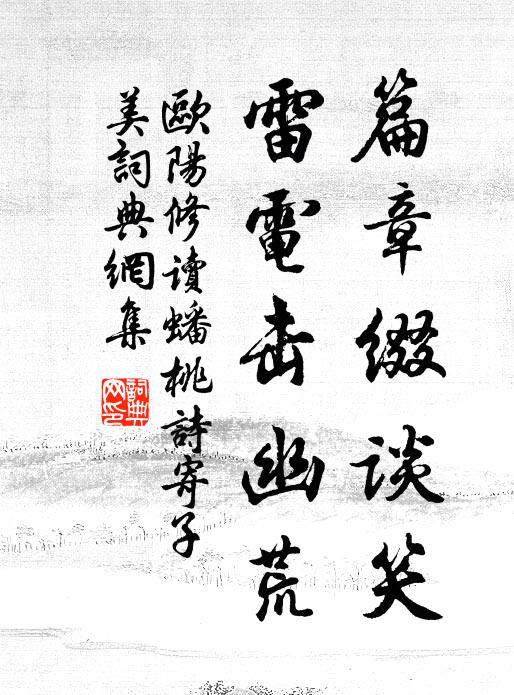 篇章缀谈笑
雷電击幽荒
歐陽修讀蟠桃詩寄子
美詞典網集
詞典
网印